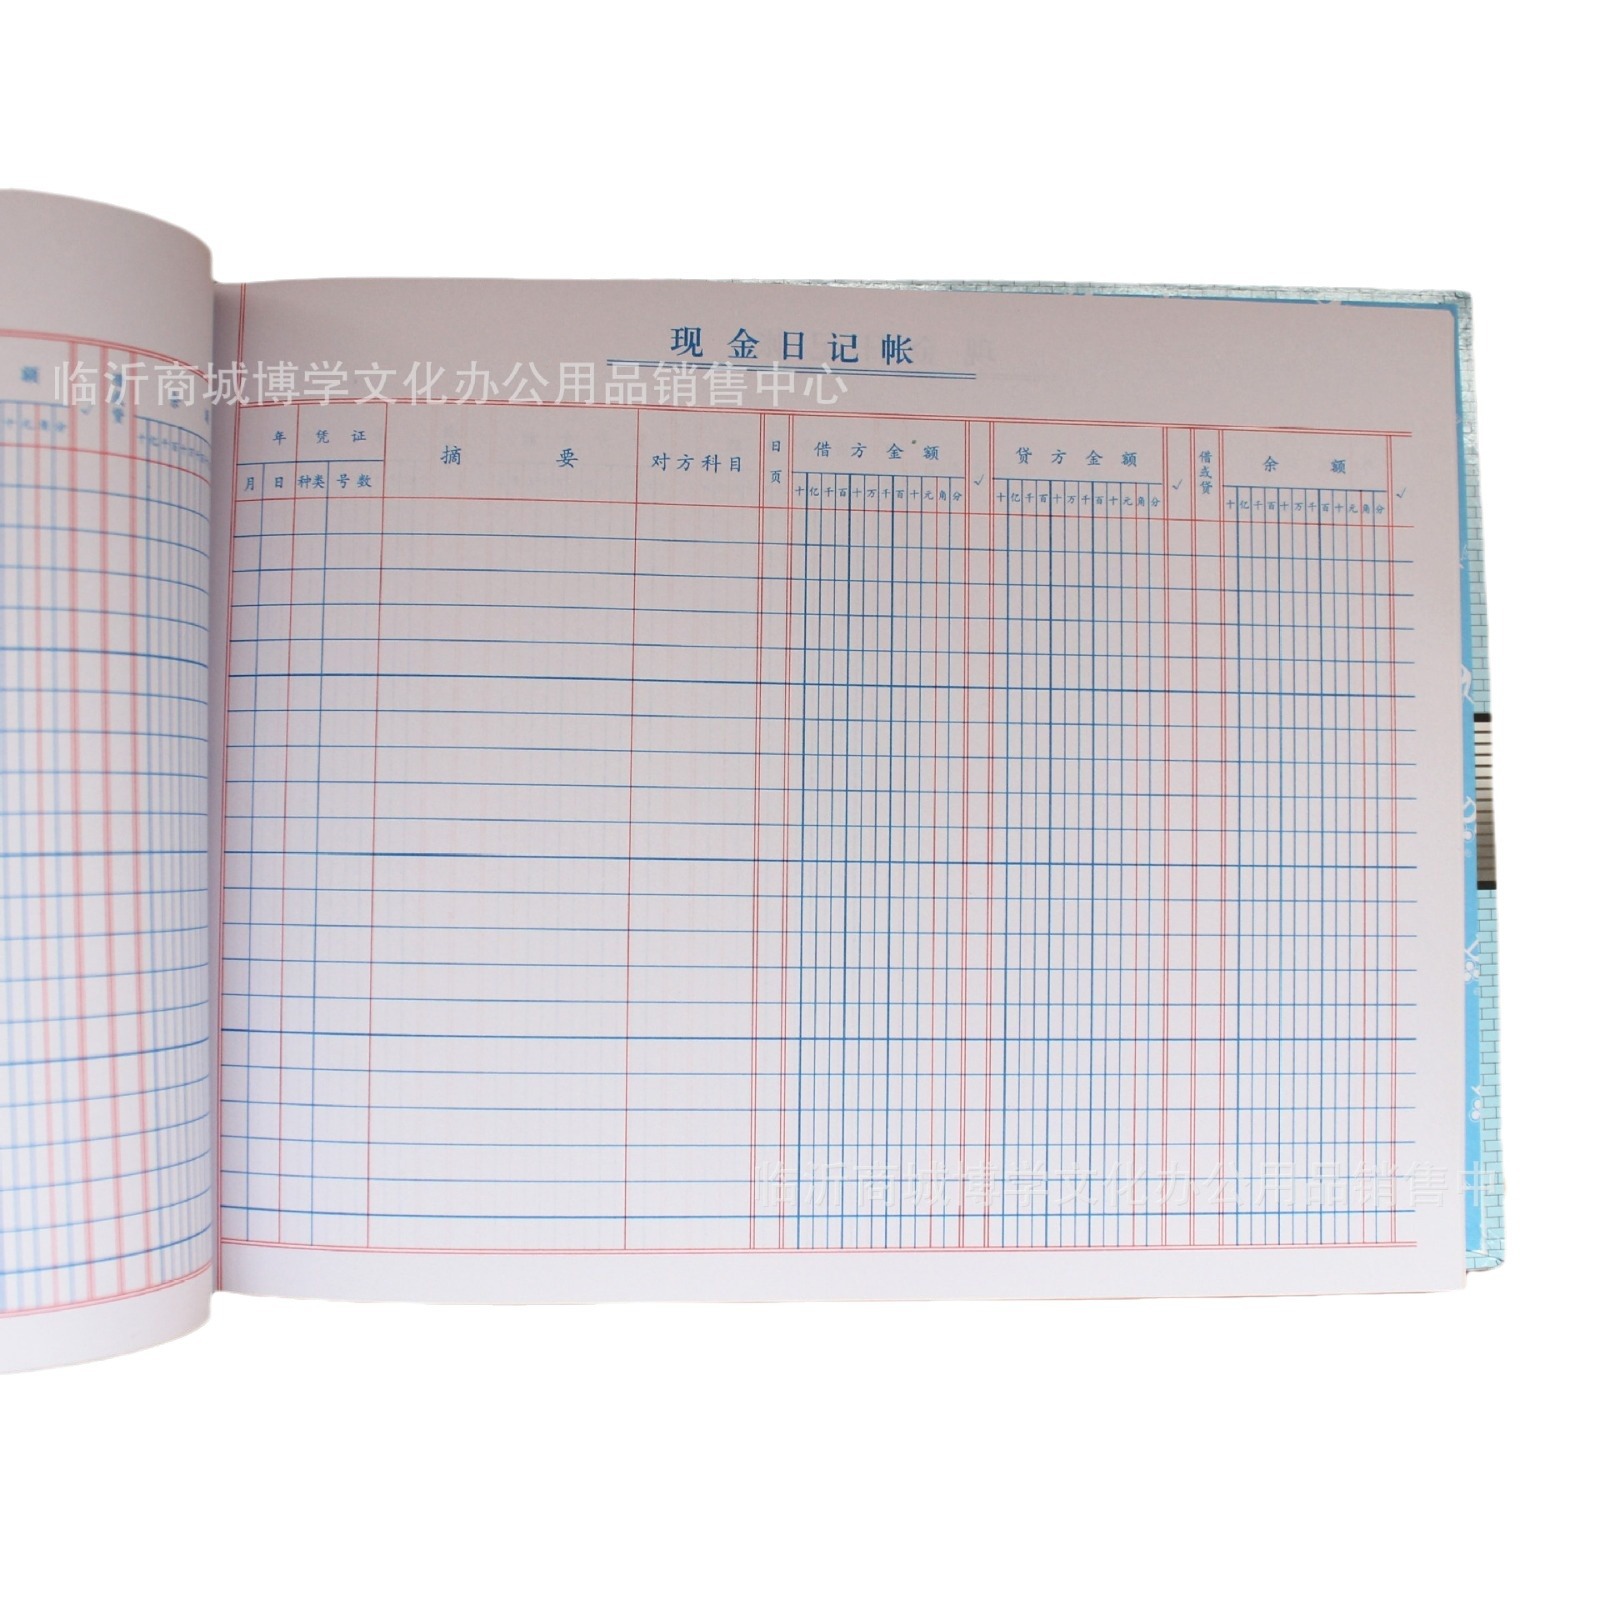 现金日记帐
临沂商城博学文化办公用品销售中心
年 凭证 摘要 对方科目 日页 借方金额 √ 贷方金额 √ 借或贷 余额 √
月 日 种类 号数 十亿千百十万千百十元角分 十亿千百十万千百十元角分 十亿千百十万千百十元角分
额
十元角分 √ 贷 十亿千百十
临沂商城博学文化办公用品销售中